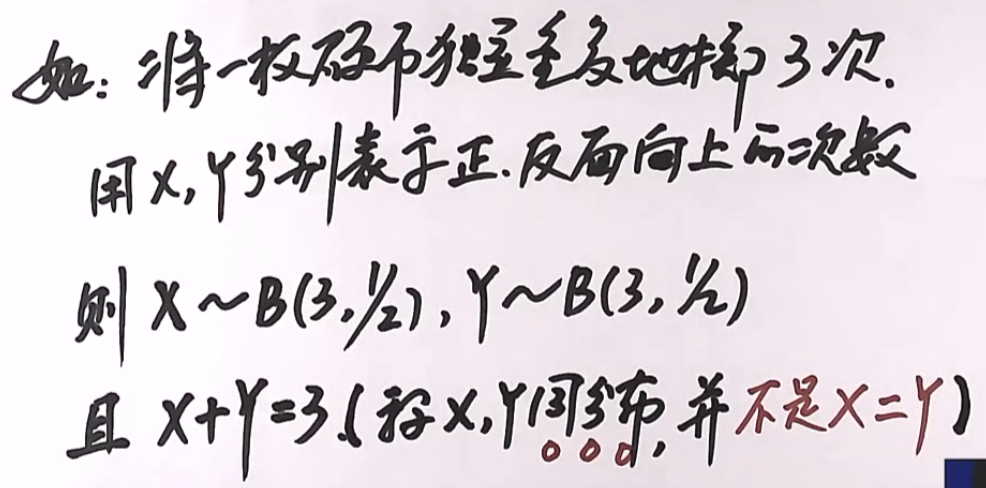 如：将一枚硬币独立重复地掷3次.
用X,Y分别表示正.反面向上的次数
则 X~B(3,1/2), Y~B(3,1/2)
且 X+Y=3.(称X,Y同分布,并不是X=Y)